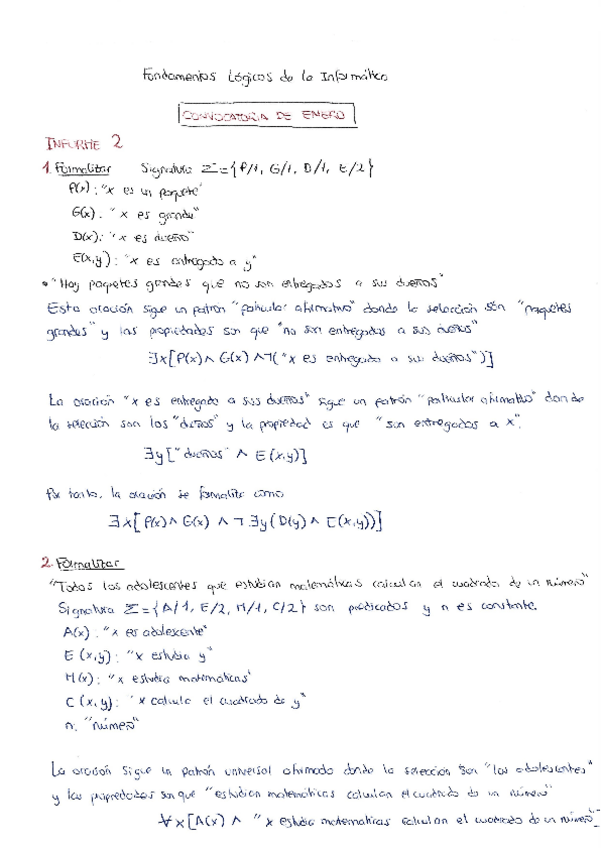 Fundamentos Lógicos de la Informática
CONVOCATORIA DE ENERO
INFORME 2
1. Formalizar Signatura Σ={P/1, G/1, D/1, E/2}
P(x): "x es un paquete"
G(x): "x es grande"
D(x): "x es dueño"
E(x,y): "x es entregado a y"
• "Hay paquetes grandes que no son entregados a sus dueños"
Esta oración sigue un patrón "particular afirmativo" donde la selección son "paquetes
grandes" y las propiedades son que "no son entregados a sus dueños"
∃x[P(x)∧G(x)∧¬("x es entregado a sus dueños")]
La oración "x es entregado a sus dueños" sigue un patrón "particular afirmativo" donde
la selección son los "dueños" y la propiedad es que "son entregados a x".
∃y["dueños" ∧ E(x,y)]
Por tanto, la oración se formaliza como
∃x[P(x)∧G(x)∧¬∃y(D(y)∧E(x,y))]
2. Formalizar
"Todos los adolescentes que estudian matemáticas calculan el cuadrado de un número"
Signatura Σ={A/1, E/2, M/1, C/2} son predicados y n es constante.
A(x): "x es adolescente"
E(x,y): "x estudia y"
M(x): "x estudia matemáticas"
C(x,y): "x calcula el cuadrado de y"
n: "número"
La oración sigue un patrón universal afirmado donde la selección son "los adolescentes"
y las propiedades son que "estudian matemáticas calculan el cuadrado de un número"
∀x[A(x) ∧ "x estudia matematicas calculan el cuadrado de un número"]